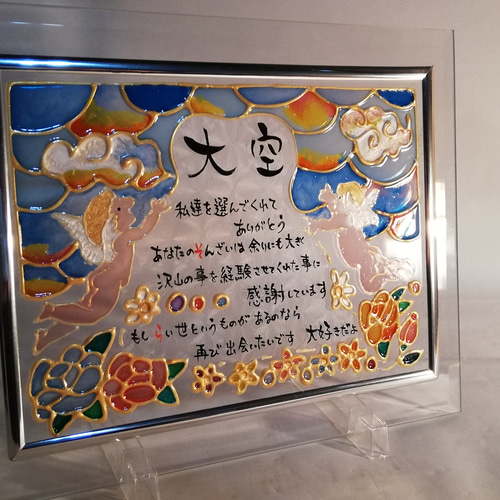 大空
私達を選んでくれて
ありがとう
あなたのそんざいは余りにも大きく
沢山の事を経験させてくれた事に
感謝しています
もしらい世というものがあるのなら
再び出会いたいです 大好きだよ